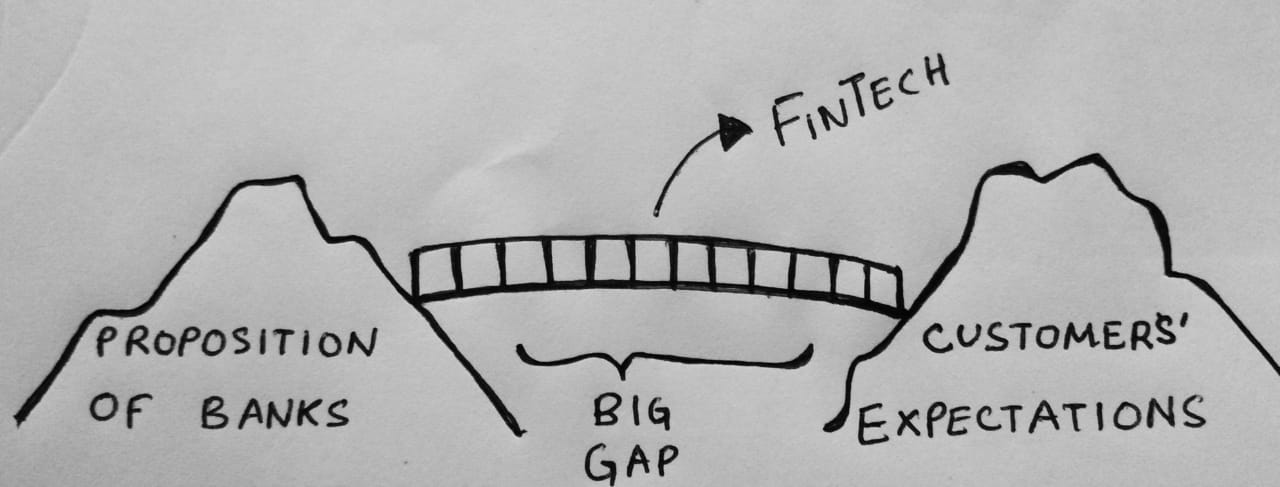 FINTECH
PROPOSITION
OF BANKS
BIG
GAP
CUSTOMERS'
EXPECTATIONS